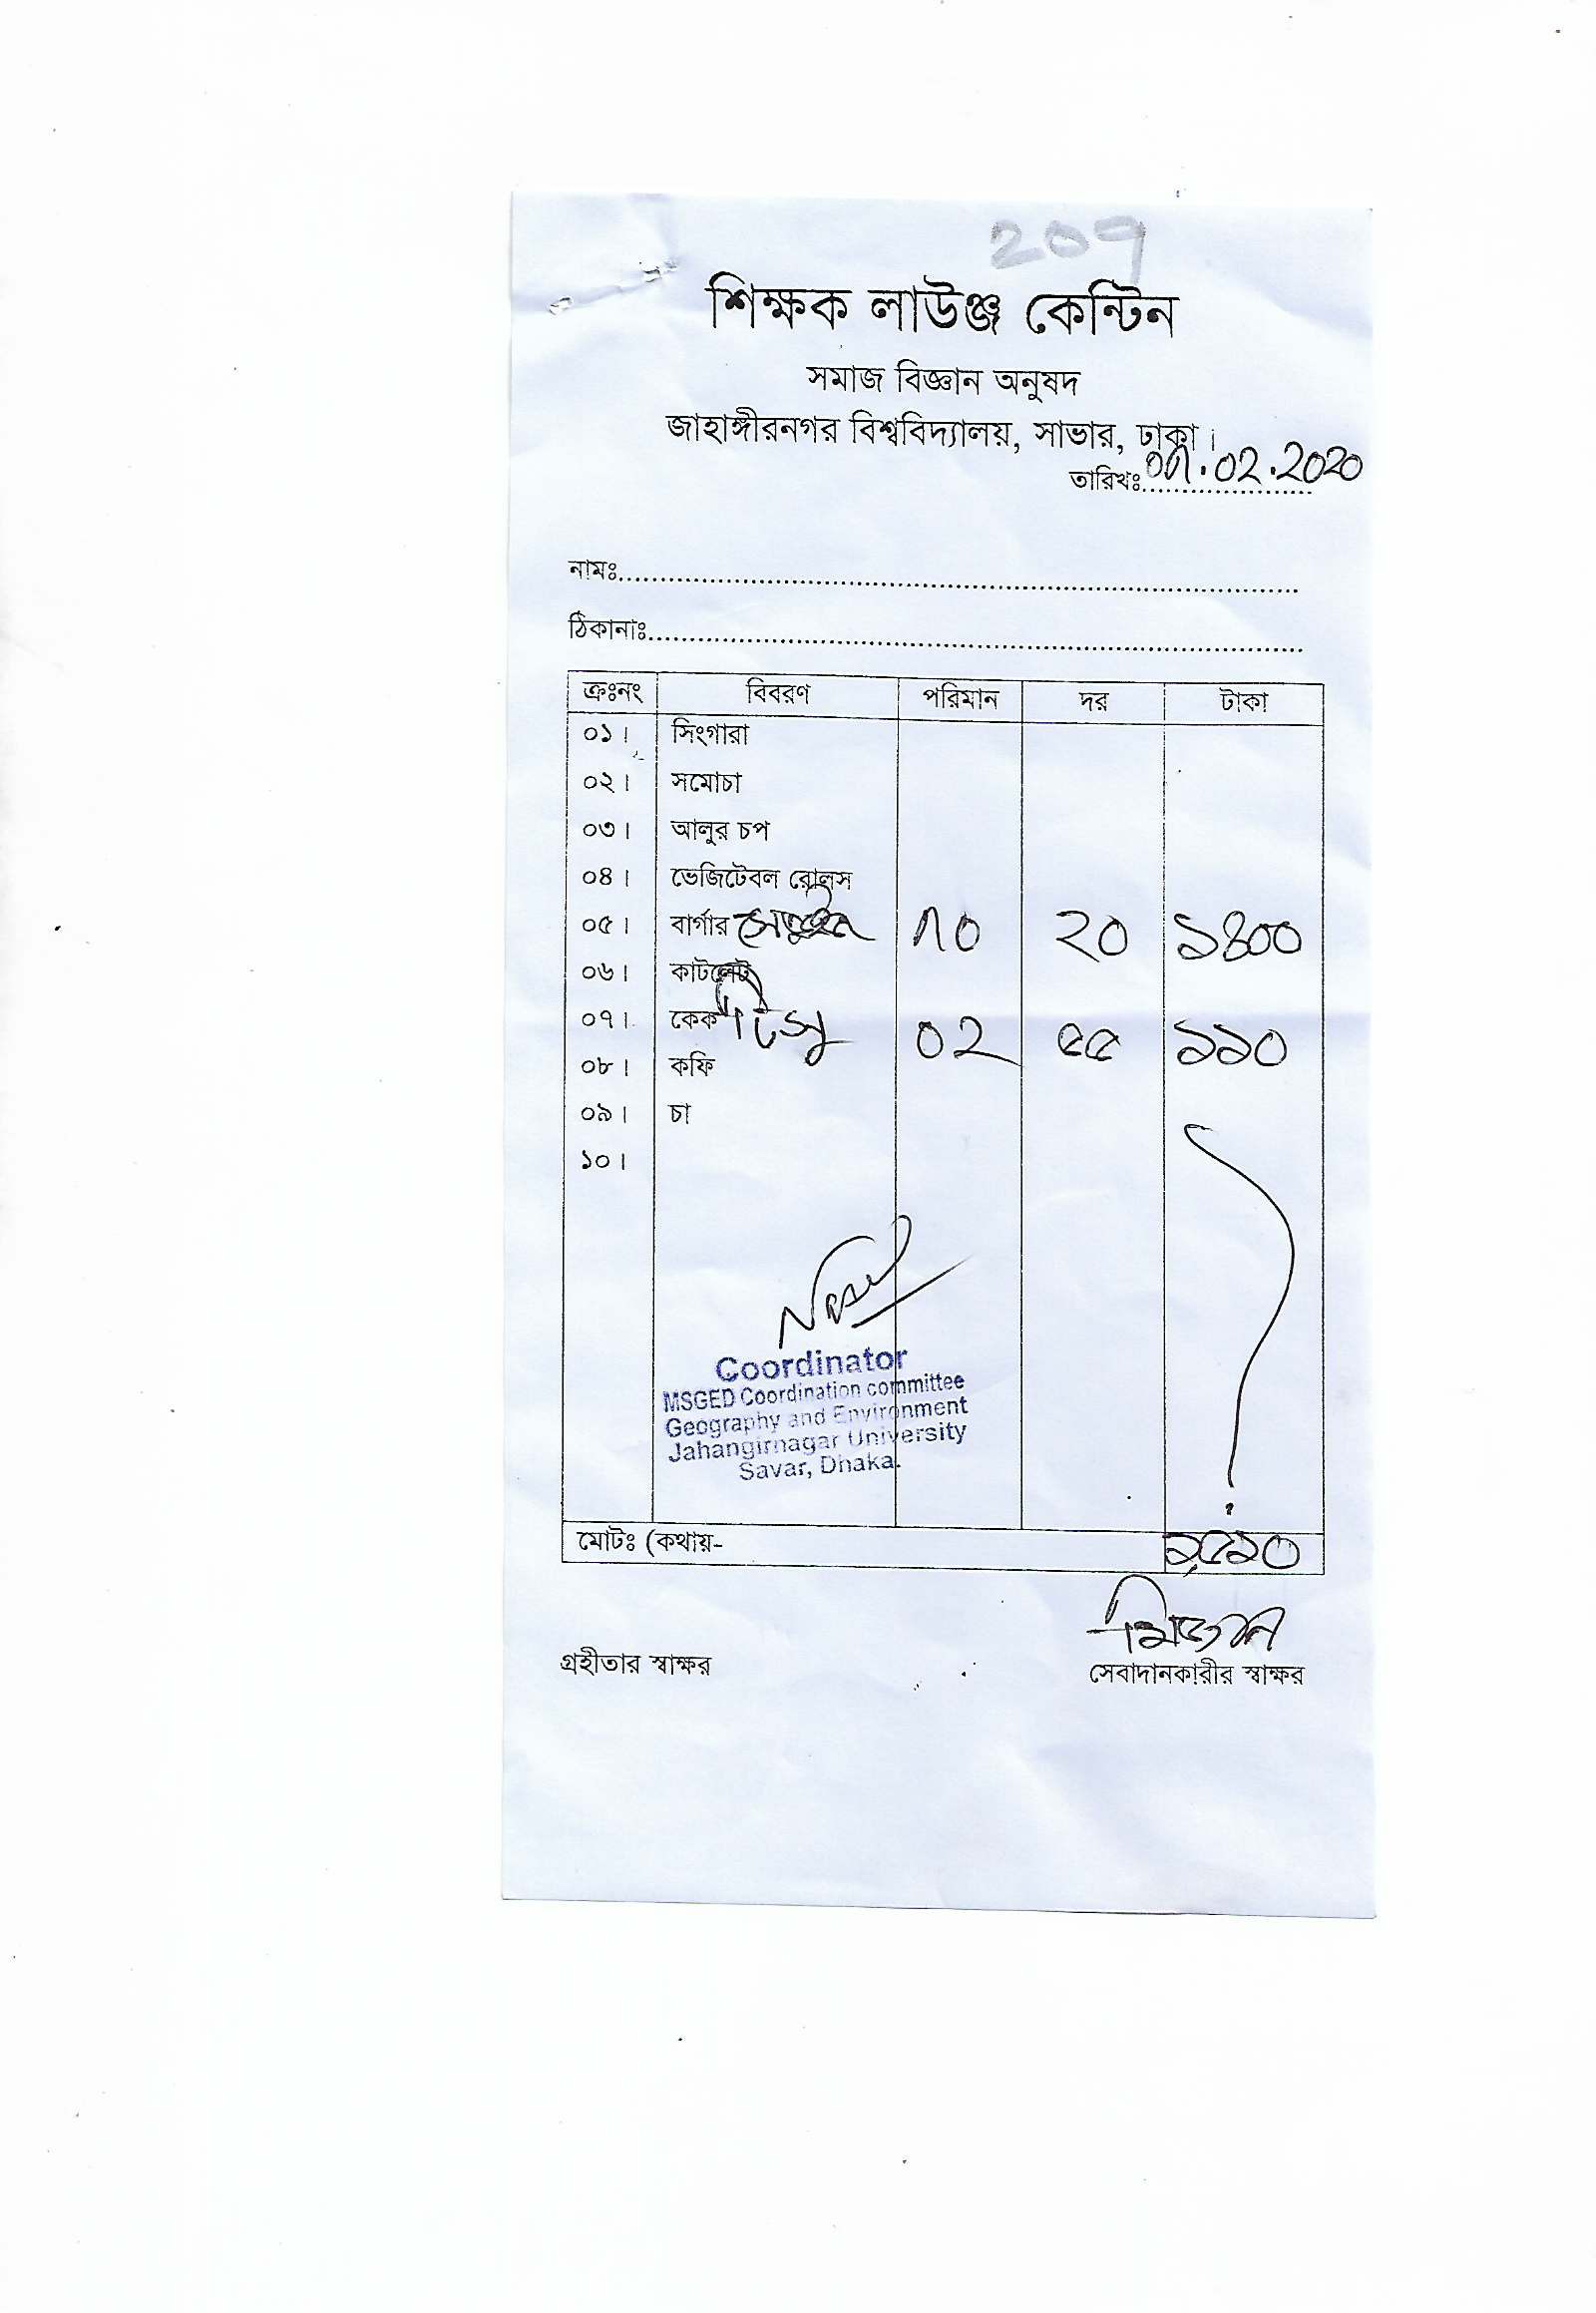 ২০৭
শিক্ষক লাউঞ্জ কেন্টিন
সমাজ বিজ্ঞান অনুষদ
জাহাঙ্গীরনগর বিশ্ববিদ্যালয়, সাভার, ঢাকা।
তারিখঃ ০৭.০২.২০২০
নামঃ
ঠিকানাঃ
ক্রঃনং বিবরণ পরিমান দর টাকা
০১। সিংগারা
০২। সমোচা
০৩। আলুর চপ
০৪। ভেজিটেবল রোলস
০৫। বার্গার ৭০ ২০ ১৪০০
০৬। কাটলেট
০৭। কেক টিসু ০২ ৫৫ ১১০
০৮। কফি
০৯। চা
১০।
Coordinator
MSGED Coordination committee
Geography and Environment
Jahangirnagar University
Savar, Dhaka.
মোটঃ (কথায়- ১,৫১০
মিজান
গ্রহীতার স্বাক্ষর সেবাদানকারীর স্বাক্ষর